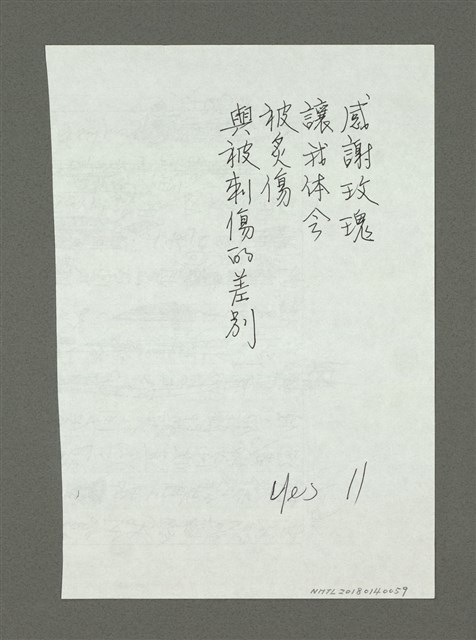 感謝玫瑰
讓我体会
被炙傷
與被刺傷的差別
yes 11
NMTL20180140059